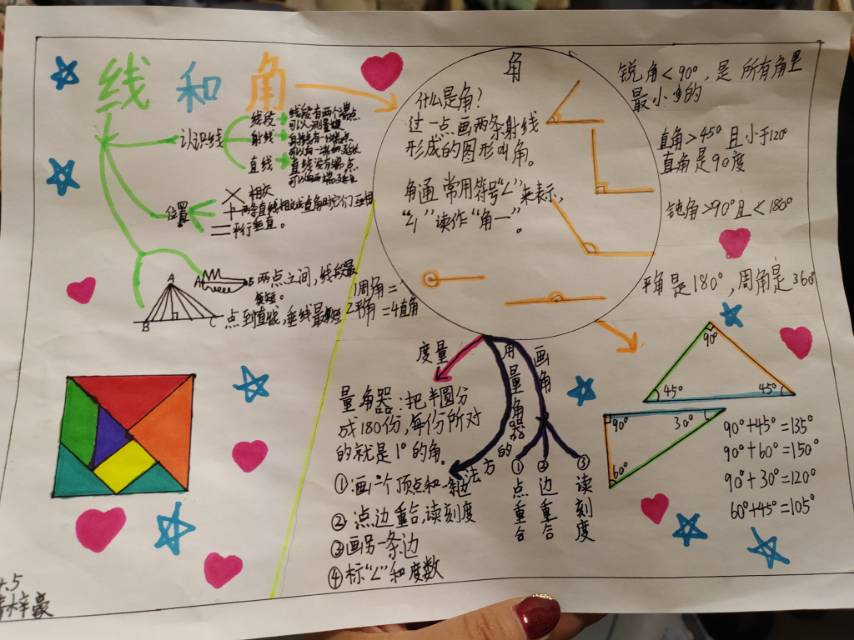 线和角
认识线
线段
线段有两个端点
可以测量
射线
直线
直线没有端点
位置
相交
平行
垂直。
两点之间,线段最
短。
点到直线,垂线最短
A
B
C
角
什么是角?
过一点画两条射线
形成的图形叫角。
角通常用符号“∠”来表示,
“∠1”读作“角一”。
1周角=
2平角=4直角
锐角<90°,是所有角里
最小的
直角>45°且小于120°
直角是90度
钝角>90°且<180°
平角是180°,周角是360°
度量
量角器:把半圆分
成180份,每份所对
的就是1°的角。
用量角器的方法
①点重合
②边重合
③读刻度
画角
①画一个顶点和一条边
②点边重合,读刻度
③画另一条边
④标“∠”和度数
90°
45°
45°
90°
30°
60°
90°+45°=135°
90°+60°=150°
90°+30°=120°
60°+45°=105°
梓豪